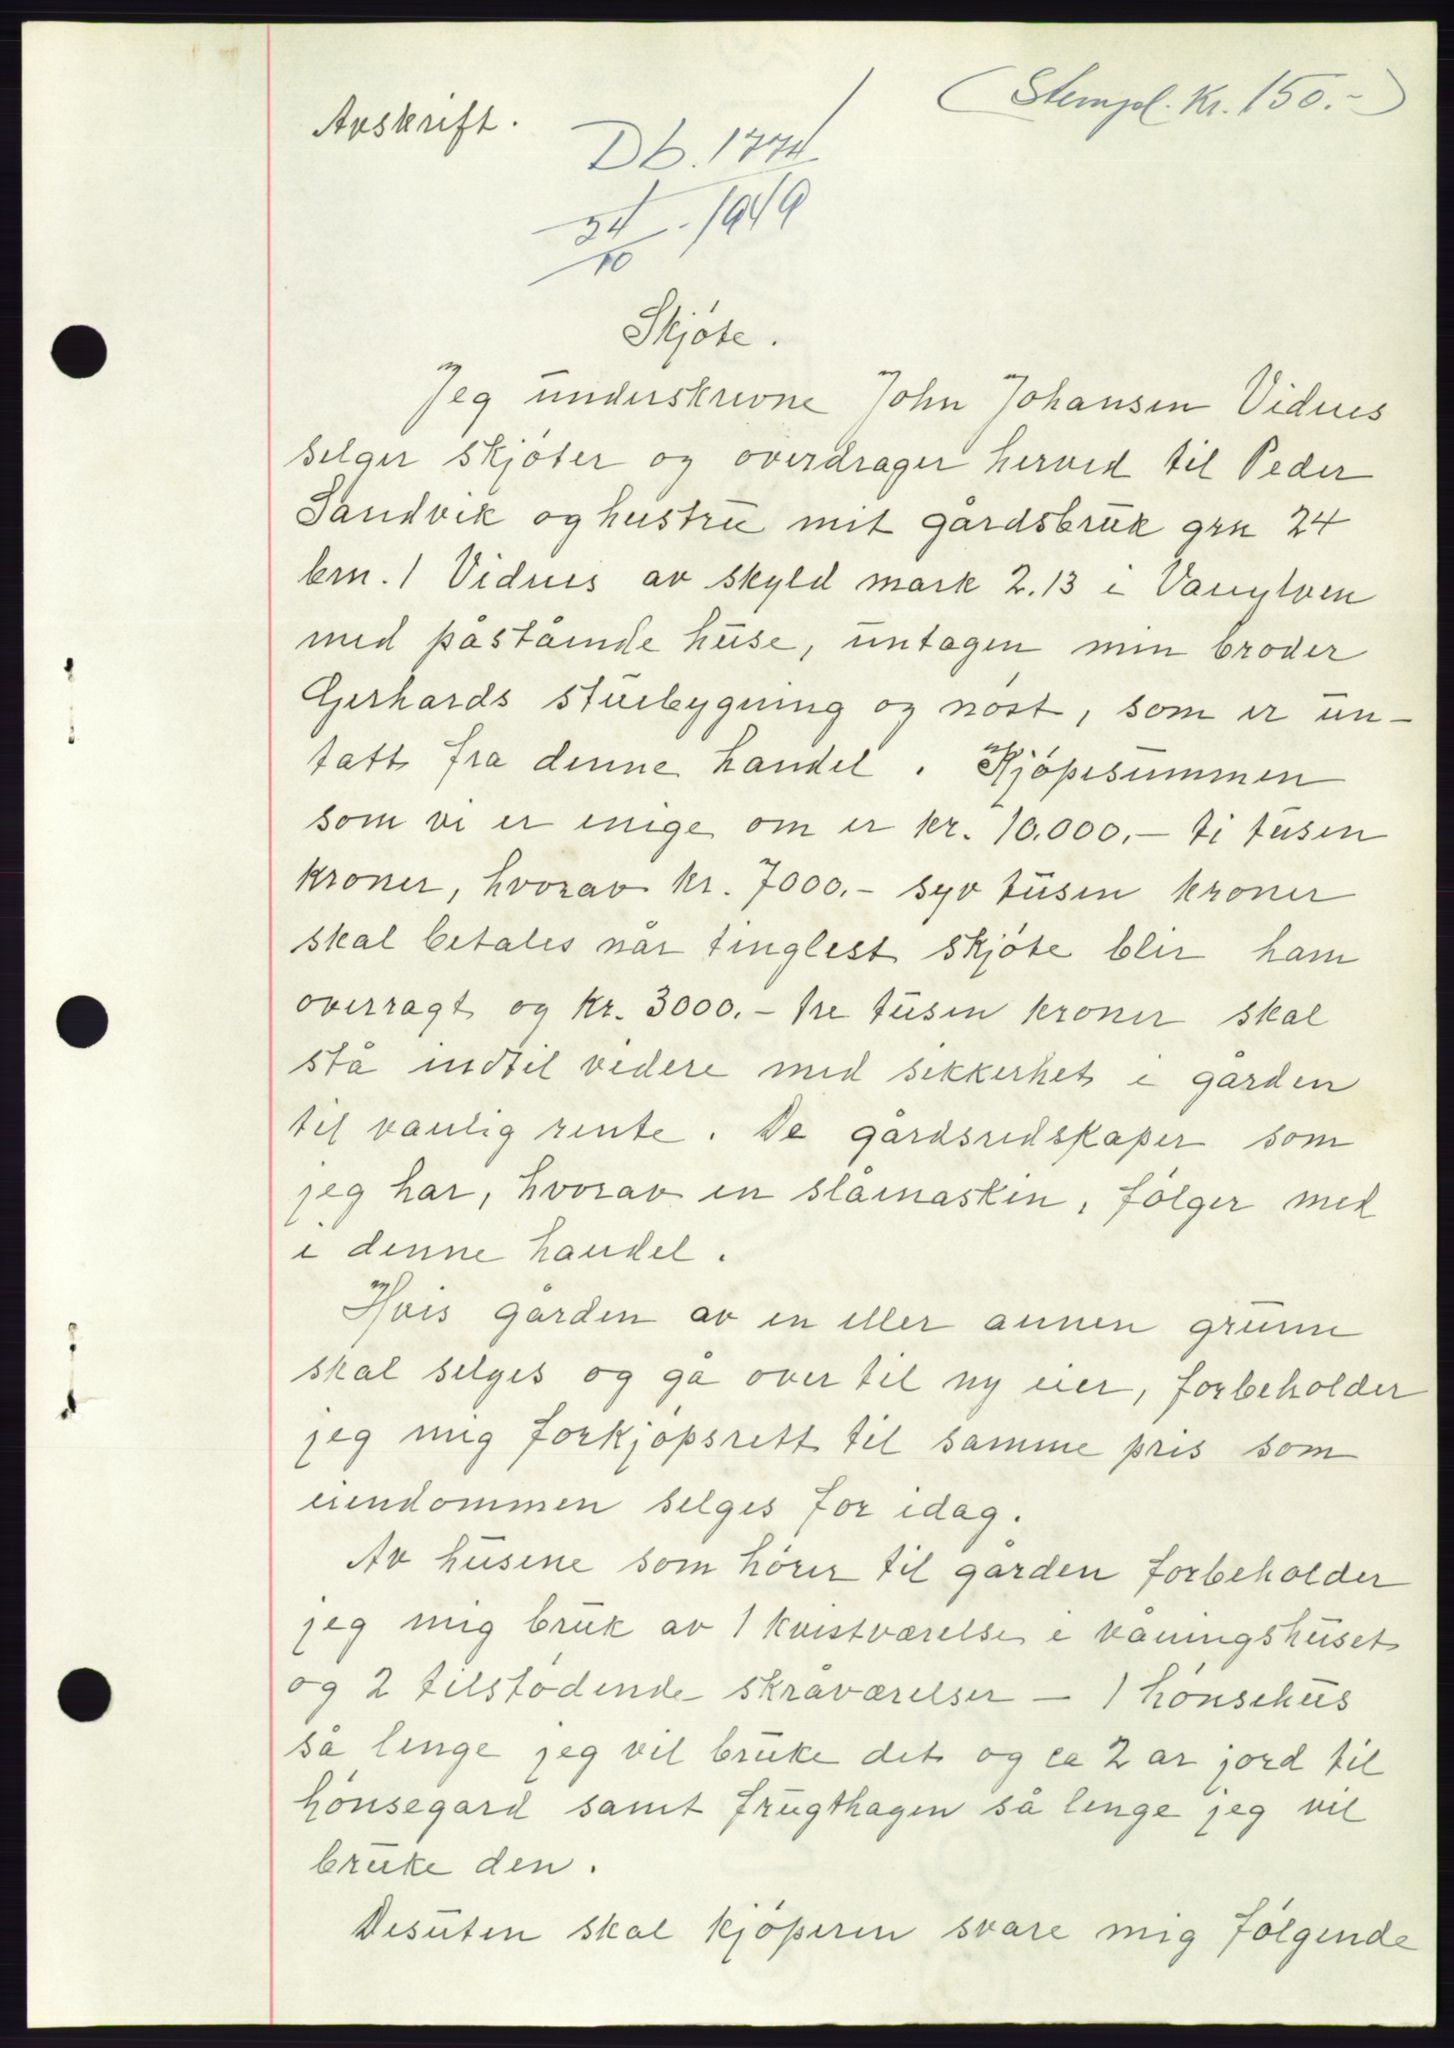 (Stempel. Kr. 150.-)
Avskrift.
Db. 1774
24/10 - 1949
Skjöte.
Jeg underskrevne John Johansen Vidnes
selger skjöter og overdrager herved til Peder
Sandvik og hustru mit gårdsbruk grn 24
brn. 1 Vidnes av skyld mark 2.13 i Vanylven
med påståënde huse, untagen min broder
Gerhards stuebygning og nöst, som er un-
tatt fra denne handel. Kjöpesummen
som vi er enige om er kr. 10.000.- ti tusen
kroner, hvorav kr. 7000.- syv tusen kroner
skal betales når tinglest skjöte blir ham
overragt og kr. 3000.- tre tusen kroner skal
stå indtil videre med sikkerhet i gården
til vanlig rente. De gårdsredskaper som
jeg har, hvorav en slåmaskin, fölger med
i denne handel.
Hvis gården av en eller annen grunn
skal selges og gå over til ny eier, forbeholder
jeg mig forkjöpsrett til samme pris som
eiendommen selges for idag.
Av husene som hörer til gården forbeholder
jeg mig bruk av 1 kvistværelse i våningshuset
og 2 tilstödende skråværelser - 1 hönsehus
så lenge jeg vil bruke det og ca 2 ar jord til
hönsegard samt frugthagen så lenge jeg vil
bruke den.
Desuten skal kjöperen svare mig fölgende